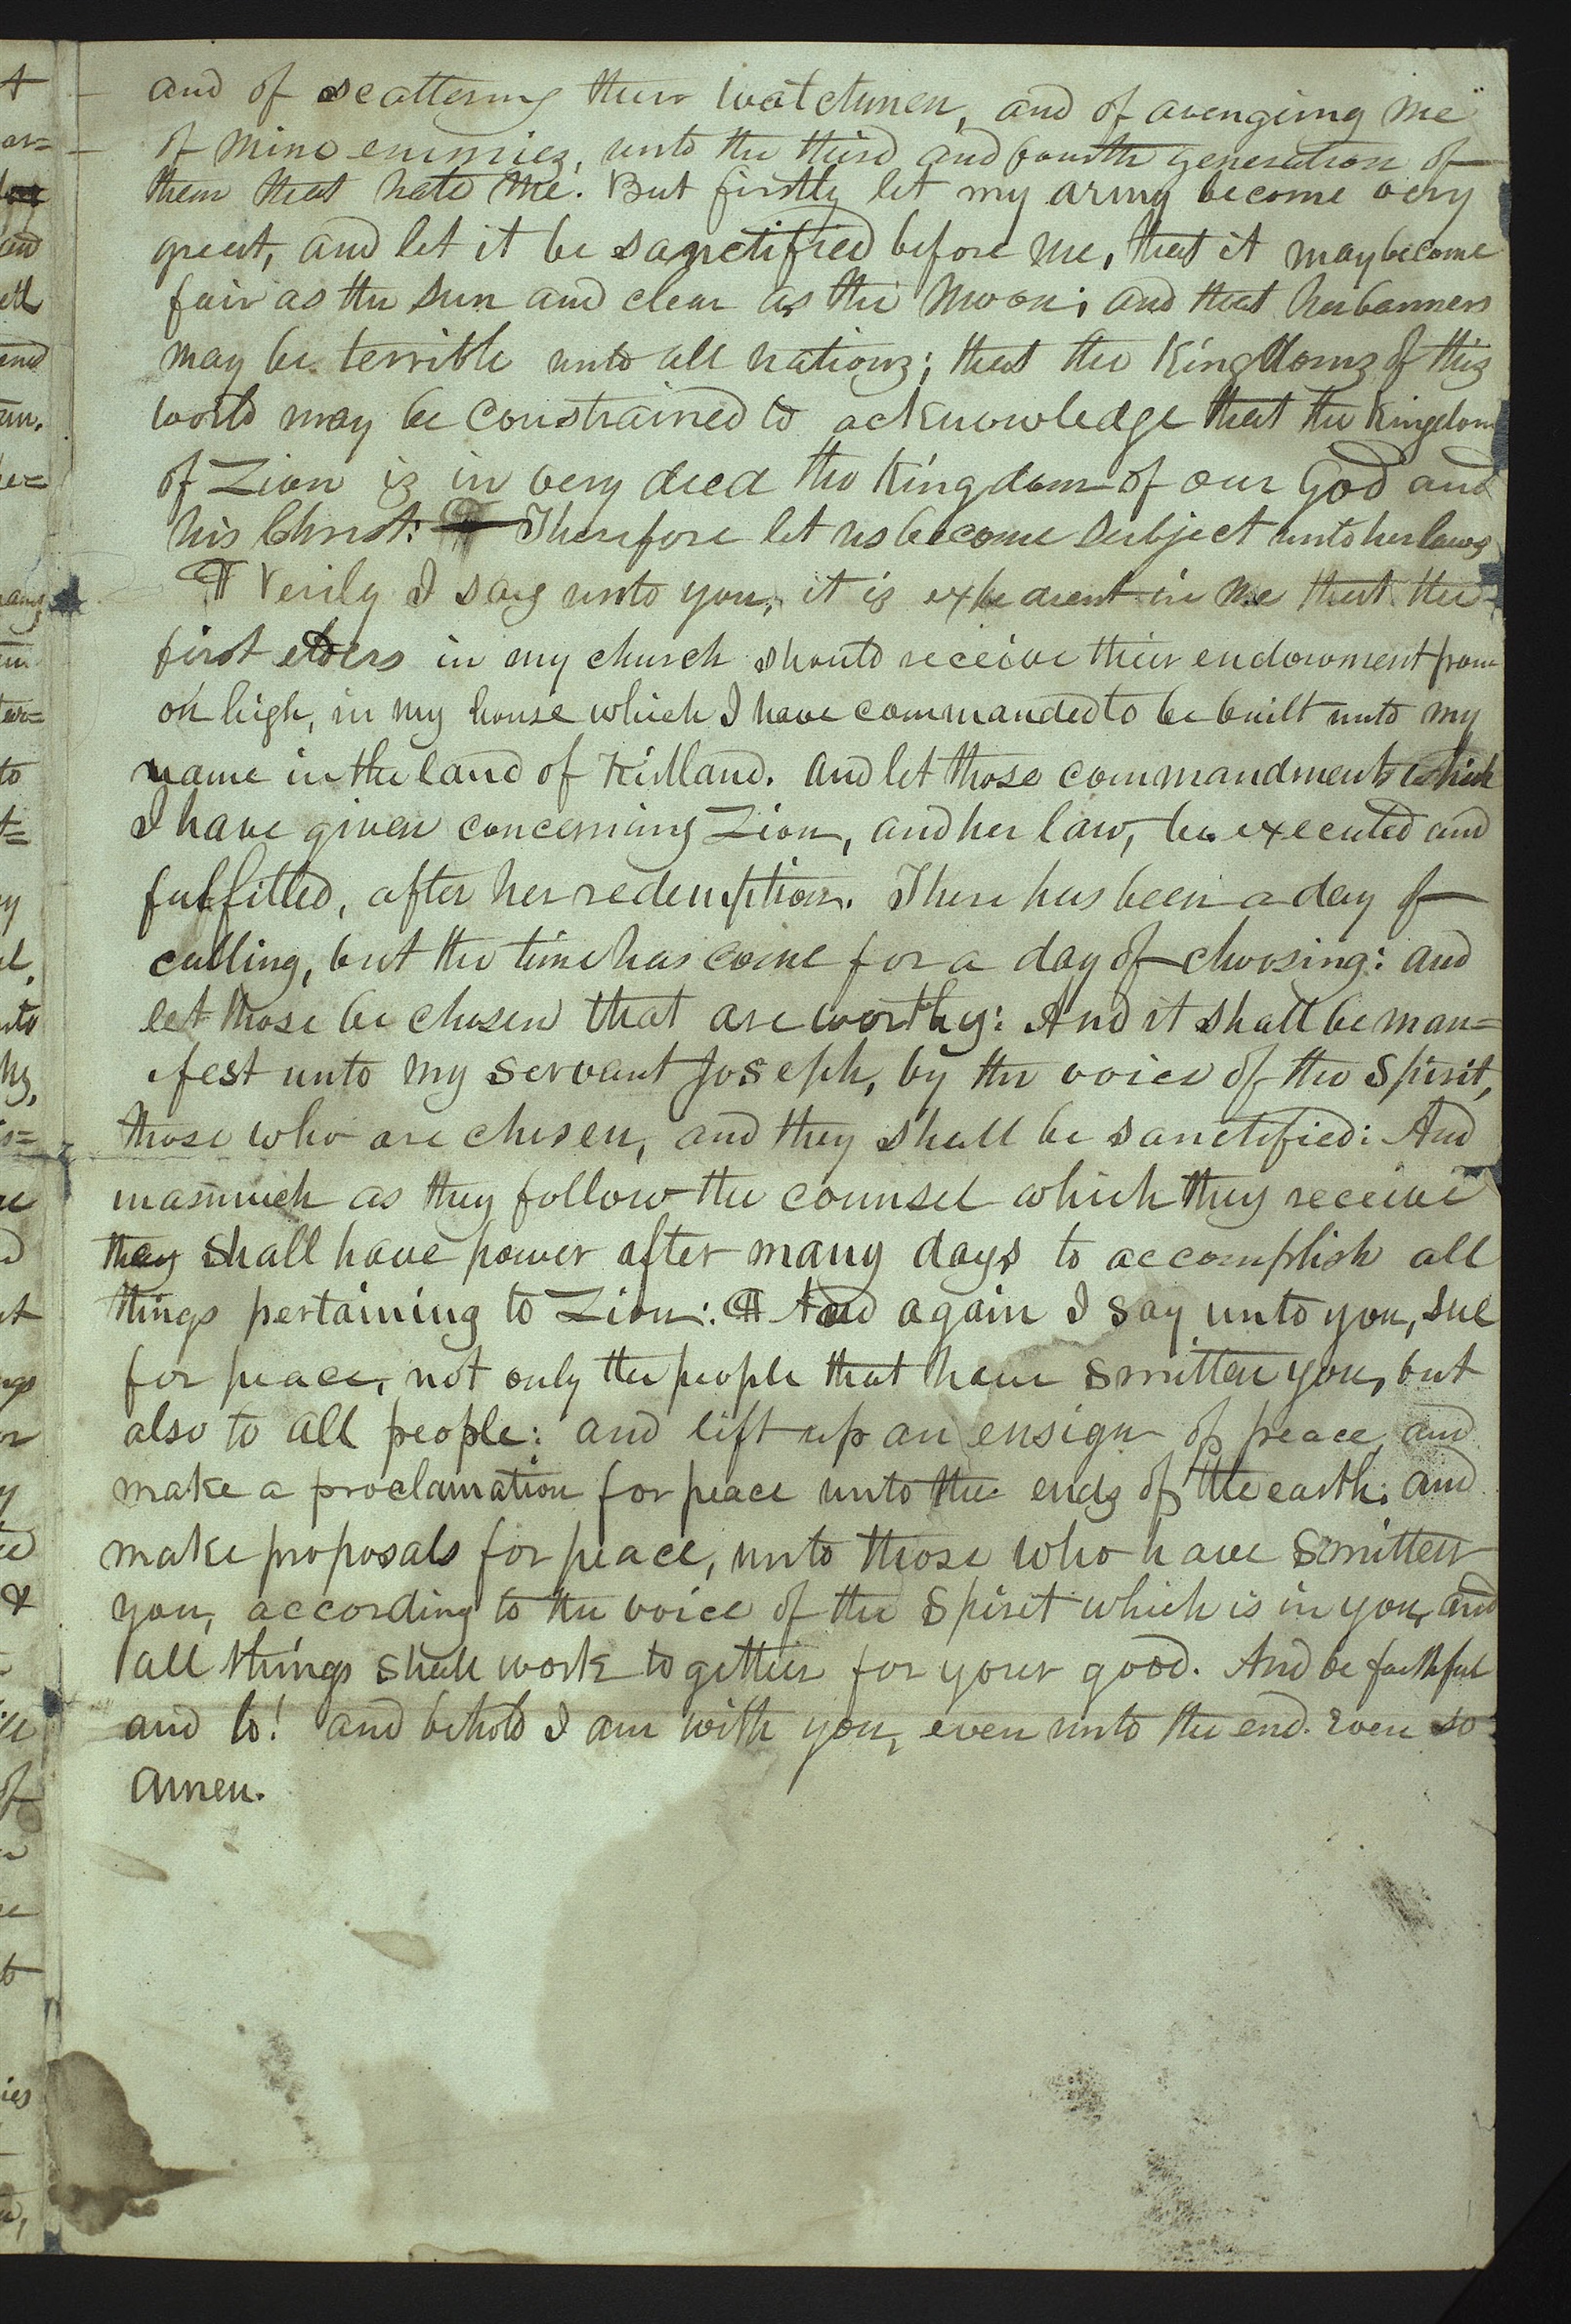 and of scattering their watchmen, and of avengeing me
of mine enemies, unto the third and fourth generation of
them that hate me. But firstly let my army become very
great, and let it be sanctified before me, that it may become
fair as the sun and clear as the moon; and that her banners
may be terrible unto all nations; that the Kingdoms of this
world may be constrained to acknowledge that the Kingdom
of Zion is in very deed the Kingdom of our God and
his Christ: Therefore let us become subject unto her laws
¶ Verily I say unto you, it is expedient in me that the
first elders in my church should receive their endowment from
on high, in my house which I have commanded to be built unto my
name in the land of Kirtland. And let those commandments which
I have given concerning Zion, and her law, be executed and
fulfilled, after her redemption. There has been a day of
calling, but the time has come for a day of choosing: and
let those be chosen that are worthy: And it shall be man=
ifest unto my servant Joseph, by the voice of the Spirit,
those who are chosen, and they shall be sanctified: And
inasmuch as they follow the counsel which they receive
they shall have power after many days to accomplish all
things pertaining to Zion: ¶ And again I say unto you, sue
for peace, not only the people that have smitten you, but
also to all people: and lift up an ensign of peace, and
make a proclamation for peace unto the ends of the earth; and
make proposals for peace, unto those who have smitten
you, according to the voice of the Spirit which is in you, and
all things shall work together for your good. And be faithful
and lo! and behold I am with you, even unto the end. Even so
Amen.